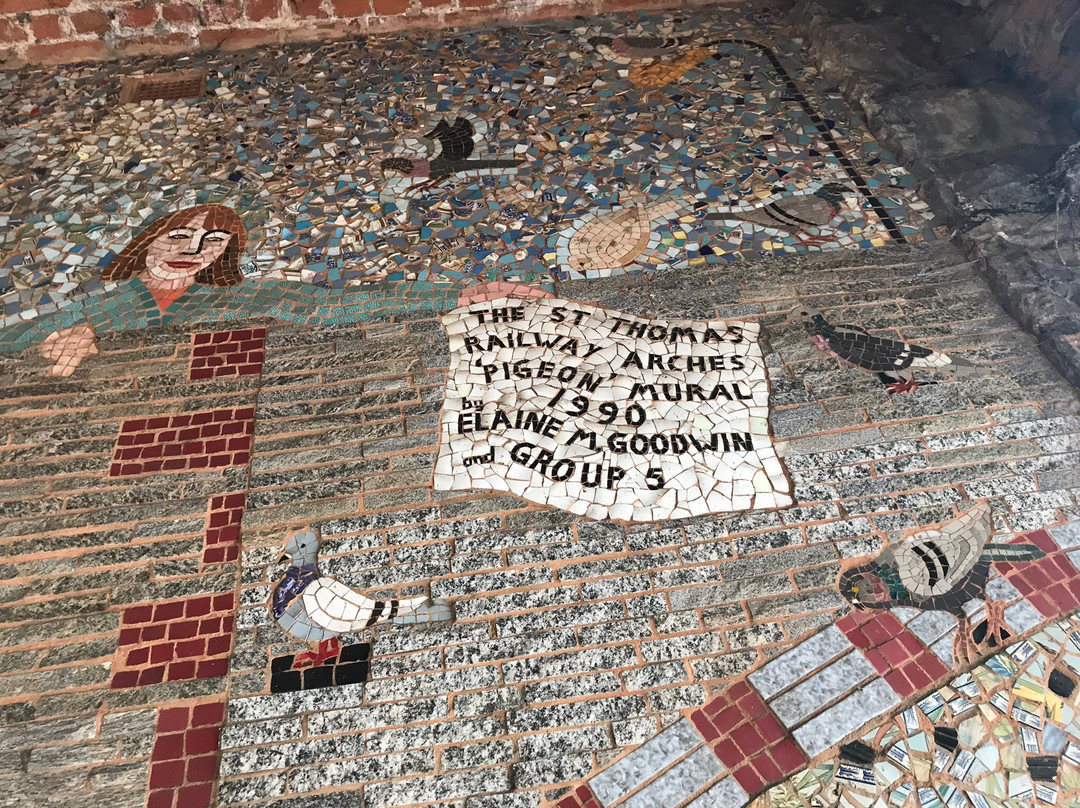 THE ST THOMAS
RAILWAY ARCHES
'PIGEON' MURAL
1990
by
ELAINE M. GOODWIN
and GROUP 5